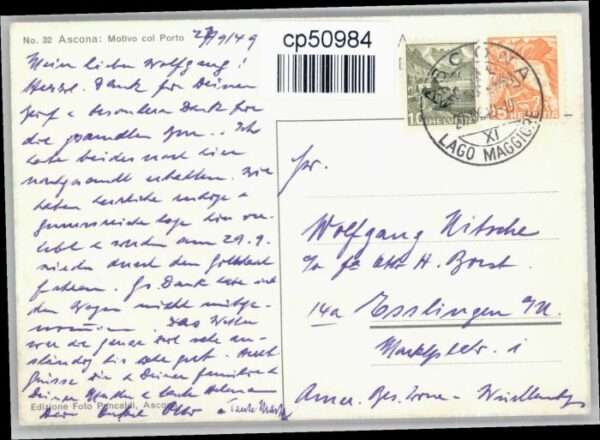 No. 32 Ascona: Motivo col Porto 27/9/49
cp50984
Mein lieber Wolfgang!
Herzl. Dank für Deinen
Brief & besonderen Dank für
die
Ich
habe beides noch hier
nachgesandt erhalten. Wir
haben herrliche ruhige &
sonnenreiche Tage hier ver-
lebt & werden am 29.9.
wieder durch den Gotthard
fahren.
den Wagen nicht mitge-
nommen. Das Wetter
war die ganze Zeit sehr an-
ständig bis sehr gut. Herzl.
Grüsse Dir & Deiner
Deiner Mutter & Tante
Dein Onkel Otto & Tante
Edizione Foto Pancaldi, Ascona
10
HELVETIA
ASCONA
XI
LAGO MAGGIORE
Hr.
Wolfgang Nitsche
H. Borst.
14a Esslingen a/N.
Marktplatz 1
Amer. Bes. Zone - Württemberg